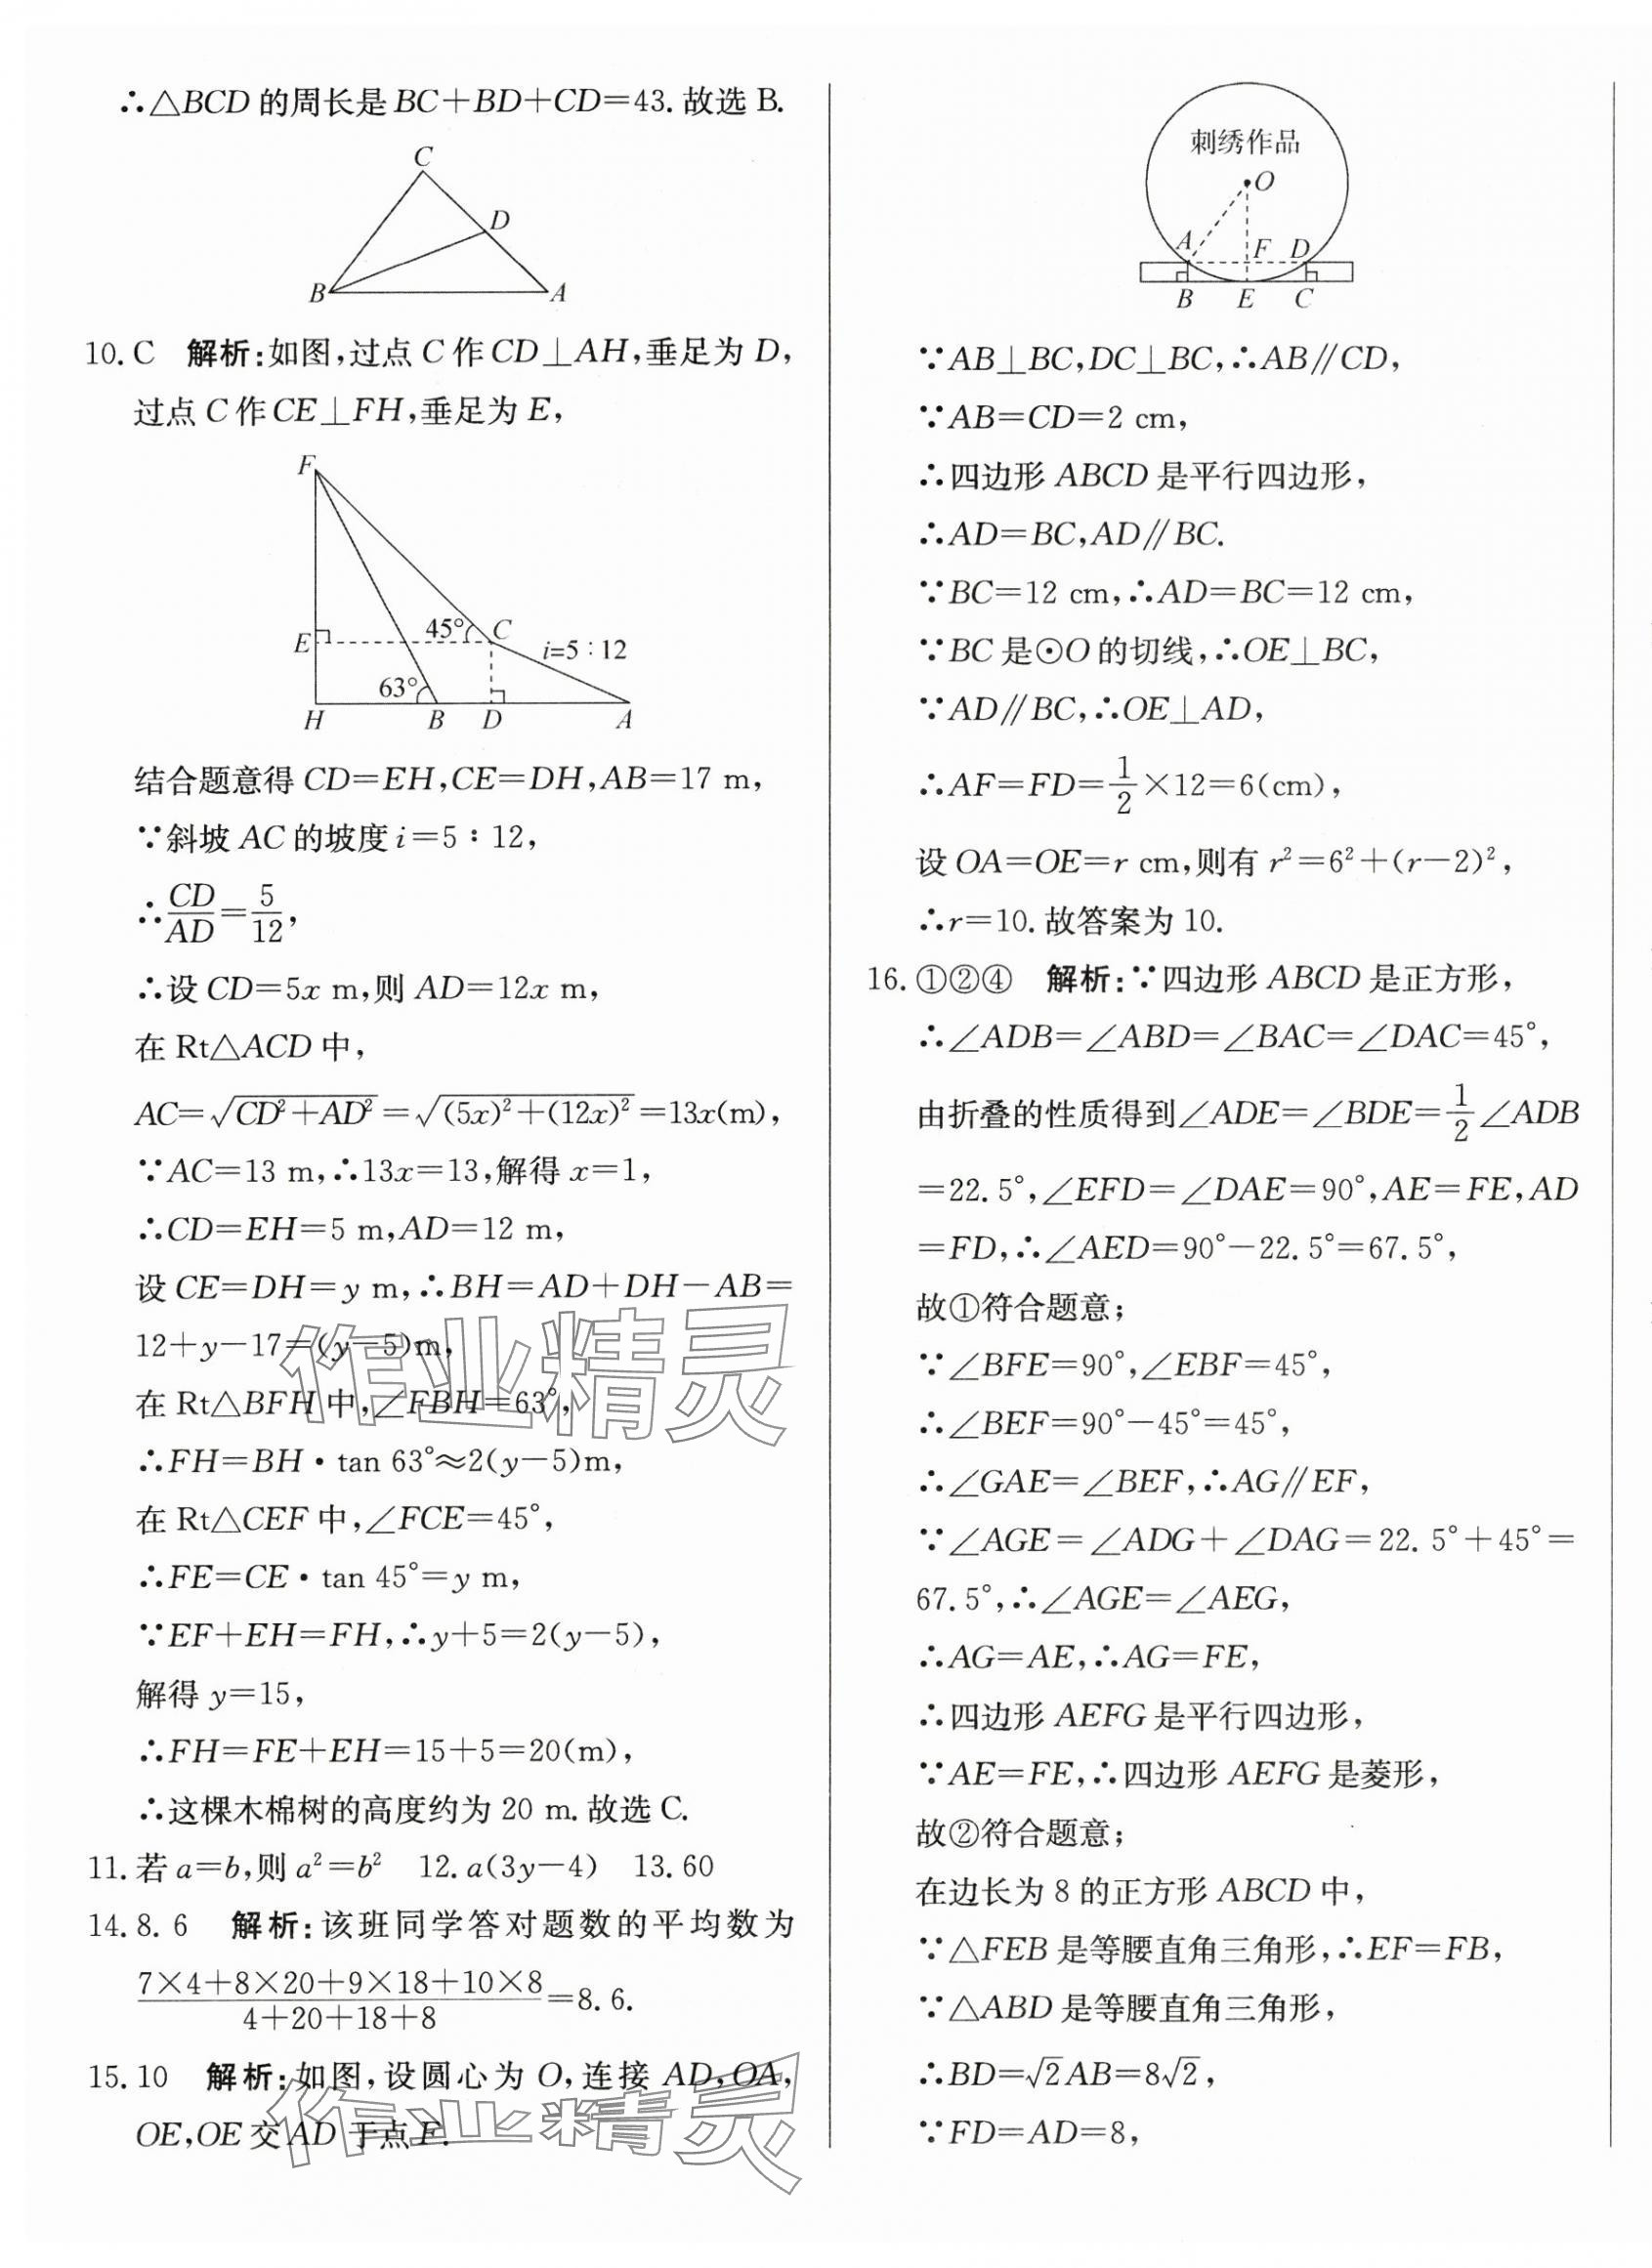 ∴△BCD 的周长是 BC+BD+CD=43. 故选 B.
C
D
B
A
10. C 解析:如图,过点 C 作 CD⊥AH,垂足为 D,
过点 C 作 CE⊥FH,垂足为 E,
F
E
45°
C
i=5∶12
63°
H B D A
结合题意得 CD=EH,CE=DH,AB=17 m,
∵斜坡 AC 的坡度 i=5∶12,
∴CD/AD=5/12,
∴设 CD=5x m,则 AD=12x m,
在 Rt△ACD 中,
AC=√(CD²+AD²)=√((5x)²+(12x)²)=13x(m),
∵AC=13 m,∴13x=13,解得 x=1,
∴CD=EH=5 m,AD=12 m,
设 CE=DH=y m,∴BH=AD+DH-AB=
12+y-17=(y-5)m,
在 Rt△BFH 中,∠FBH=63°,
∴FH=BH·tan 63°≈2(y-5)m,
在 Rt△CEF 中,∠FCE=45°,
∴FE=CE·tan 45°=y m,
∵EF+EH=FH,∴y+5=2(y-5),
解得 y=15,
∴FH=FE+EH=15+5=20(m),
∴这棵木棉树的高度约为 20 m. 故选 C.
11. 若 a=b,则 a²=b² 12. a(3y-4) 13. 60
14. 8.6 解析:该班同学答对题数的平均数为
(7×4+8×20+9×18+10×8)/(4+20+18+8)=8.6.
15. 10 解析:如图,设圆心为 O,连接 AD,OA,
OE,OE 交 AD 于点 F.
作业精灵
作业精灵
刺绣作品
O
A F D
B E C
∵AB⊥BC,DC⊥BC,∴AB∥CD,
∵AB=CD=2 cm,
∴四边形 ABCD 是平行四边形,
∴AD=BC,AD∥BC.
∵BC=12 cm,∴AD=BC=12 cm,
∵BC 是⊙O 的切线,∴OE⊥BC,
∵AD∥BC,∴OE⊥AD,
∴AF=FD=1/2×12=6(cm),
设 OA=OE=r cm,则有 r²=6²+(r-2)²,
∴r=10. 故答案为 10.
16. ①②④ 解析:∵四边形 ABCD 是正方形,
∴∠ADB=∠ABD=∠BAC=∠DAC=45°,
由折叠的性质得到∠ADE=∠BDE=1/2∠ADB
=22.5°,∠EFD=∠DAE=90°,AE=FE,AD
=FD,∴∠AED=90°-22.5°=67.5°,
故①符合题意;
∵∠BFE=90°,∠EBF=45°,
∴∠BEF=90°-45°=45°,
∴∠GAE=∠BEF,∴AG∥EF,
∵∠AGE=∠ADG+∠DAG=22.5°+45°=
67.5°,∴∠AGE=∠AEG,
∴AG=AE,∴AG=FE,
∴四边形 AEFG 是平行四边形,
∵AE=FE,∴四边形 AEFG 是菱形,
故②符合题意;
在边长为 8 的正方形 ABCD 中,
∵△FEB 是等腰直角三角形,∴EF=FB,
∵△ABD 是等腰直角三角形,
∴BD=√2AB=8√2,
∵FD=AD=8,